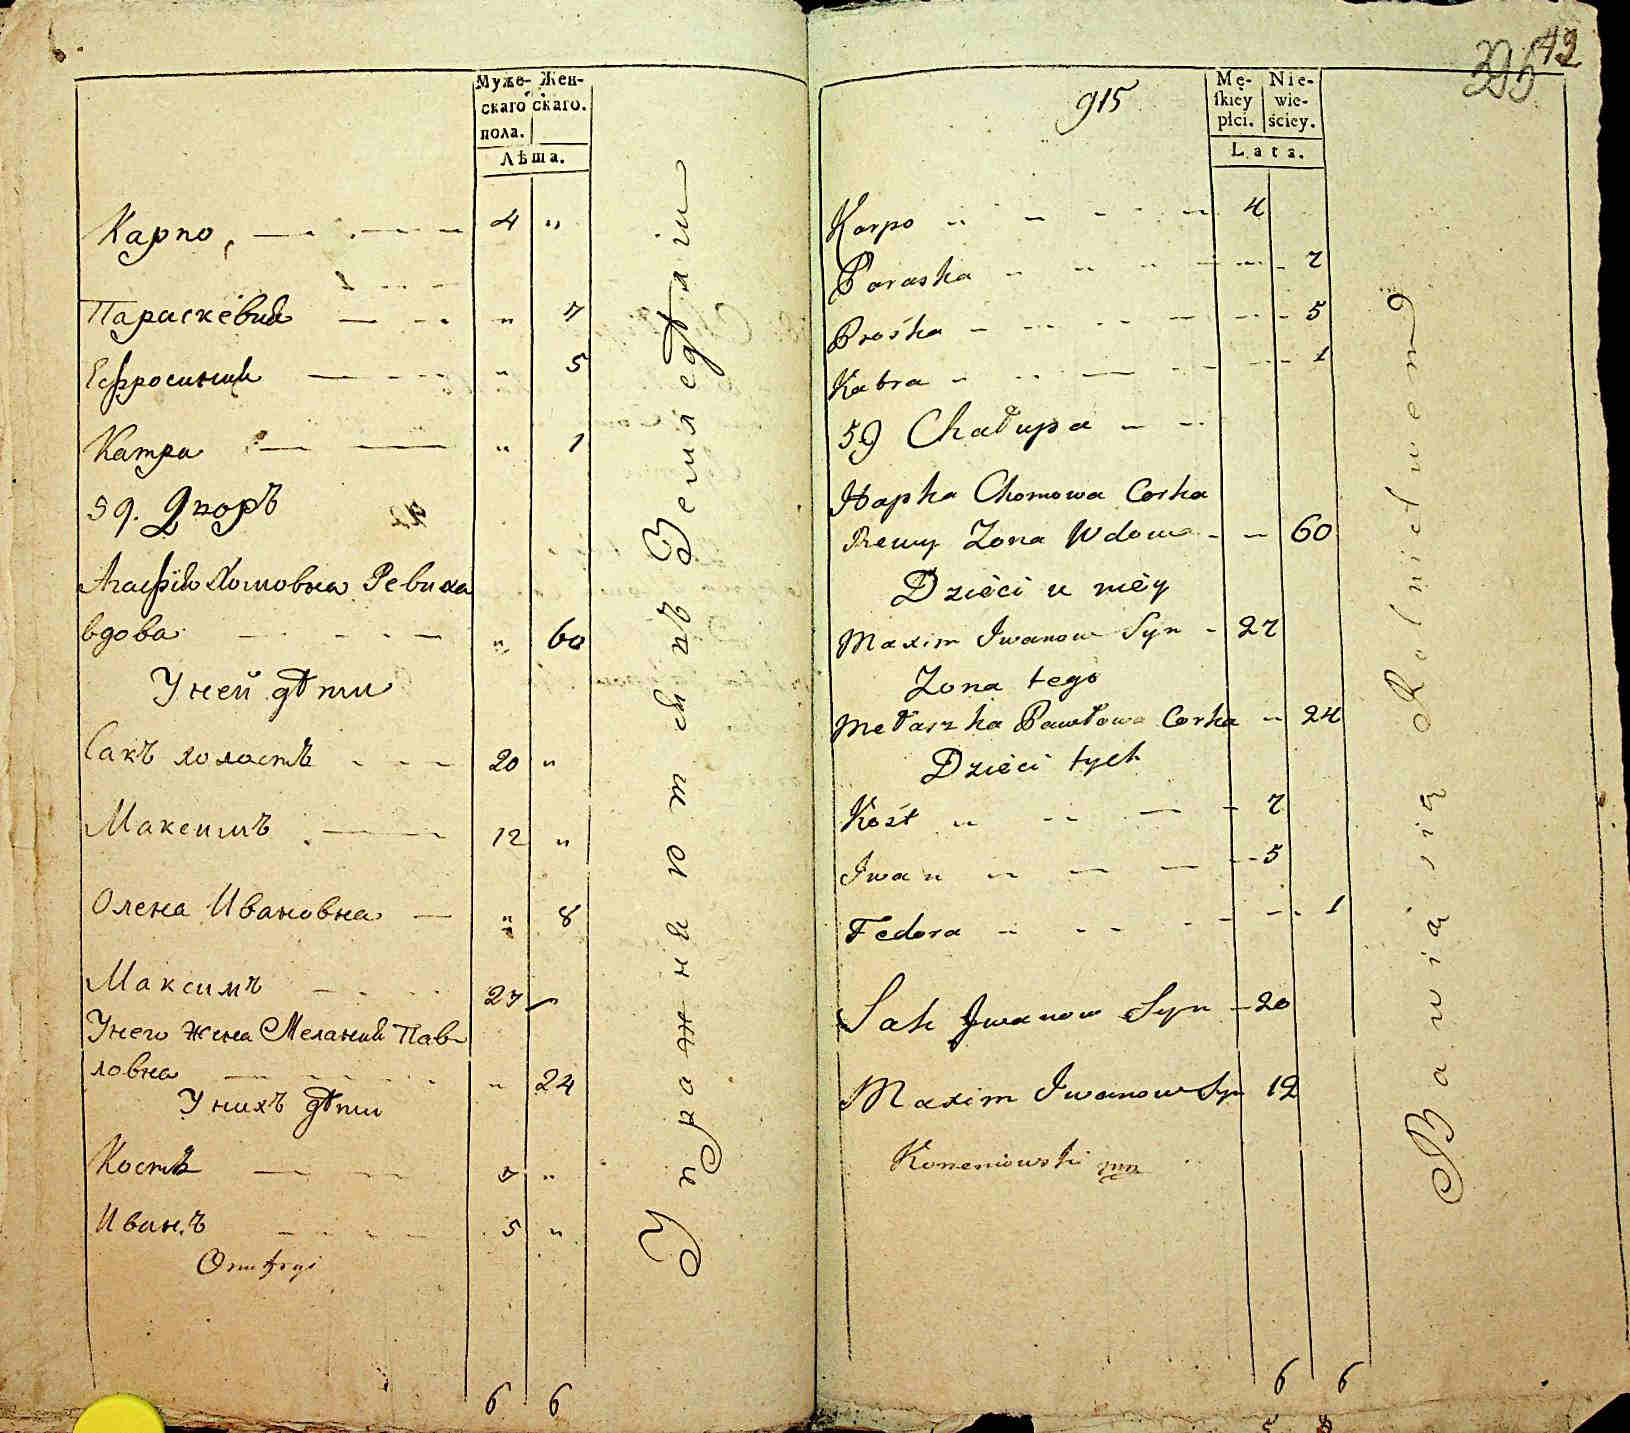 Муже- Жен-
скаго скаго.
пола.
Лѣта.
Карпо, 4 "
Параскевия " 7
Ефросиния " 5
Катра " 1
59. Дворъ
Агафія Хомовна Ревиха
вдова " 60
У ней дѣти
Сакъ холостъ 20 "
Максимъ 12 "
Олена Ивановна " 8
Максимъ 27
У него жена Мелания Пав-
ловна " 24
У нихъ дѣти
Костъ 7 "
Иванъ 5 "
6 6
Упражняются въ Земледѣліи
42
915
Mę- Nie-
skiey wie-
płci. ściey.
Lata.
Karpo 4
Paraska 7
Prośka 5
Katra 1
59 Chałupa
Hapka Chomowa Corka
Rewy Zona Wdowa 60
Dzieci u niey
Maxim Iwanow Syn 27
Zona tego
Mełaszka Pawłowa Corka 24
Dzieci tych
Kost 7
Iwan 5
Fedora 1
Sak Iwanow Syn 20
Maxim Iwanow Syn 12
6 6
Bawią się Rolnictwem